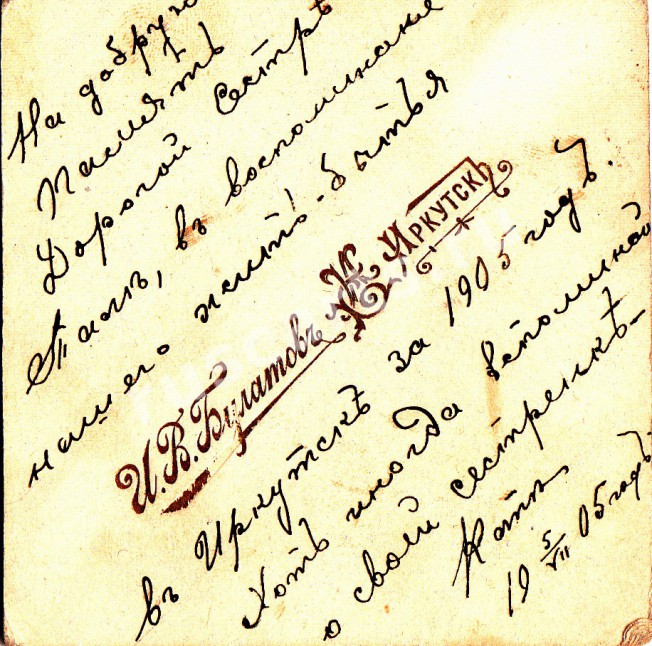 На добрую
Память
Дорогой Сестрѣ
Тане, въ воспоминание
нашего житья-бытья
И.В.Булатовъ Иркутскъ
въ Иркутскѣ за 1905 годъ.
Хоть иногда вспоминай
о своей сестренкѣ-
Катѣ
19 5/VII 05 годъ